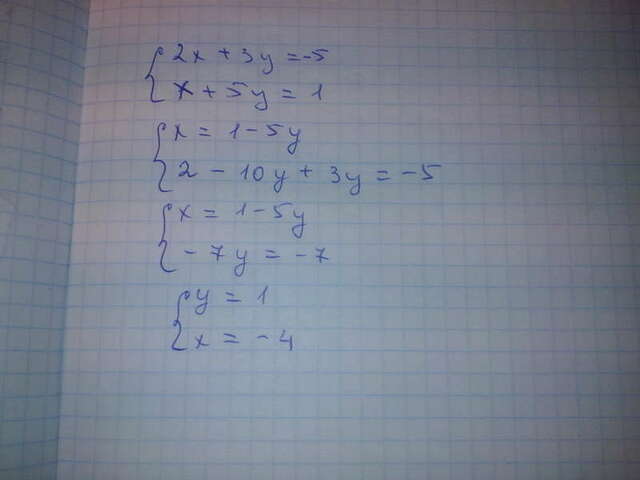 2x + 3y = -5
x + 5y = 1
x = 1 - 5y
2 - 10y + 3y = -5
x = 1 - 5y
- 7y = -7
y = 1
x = -4